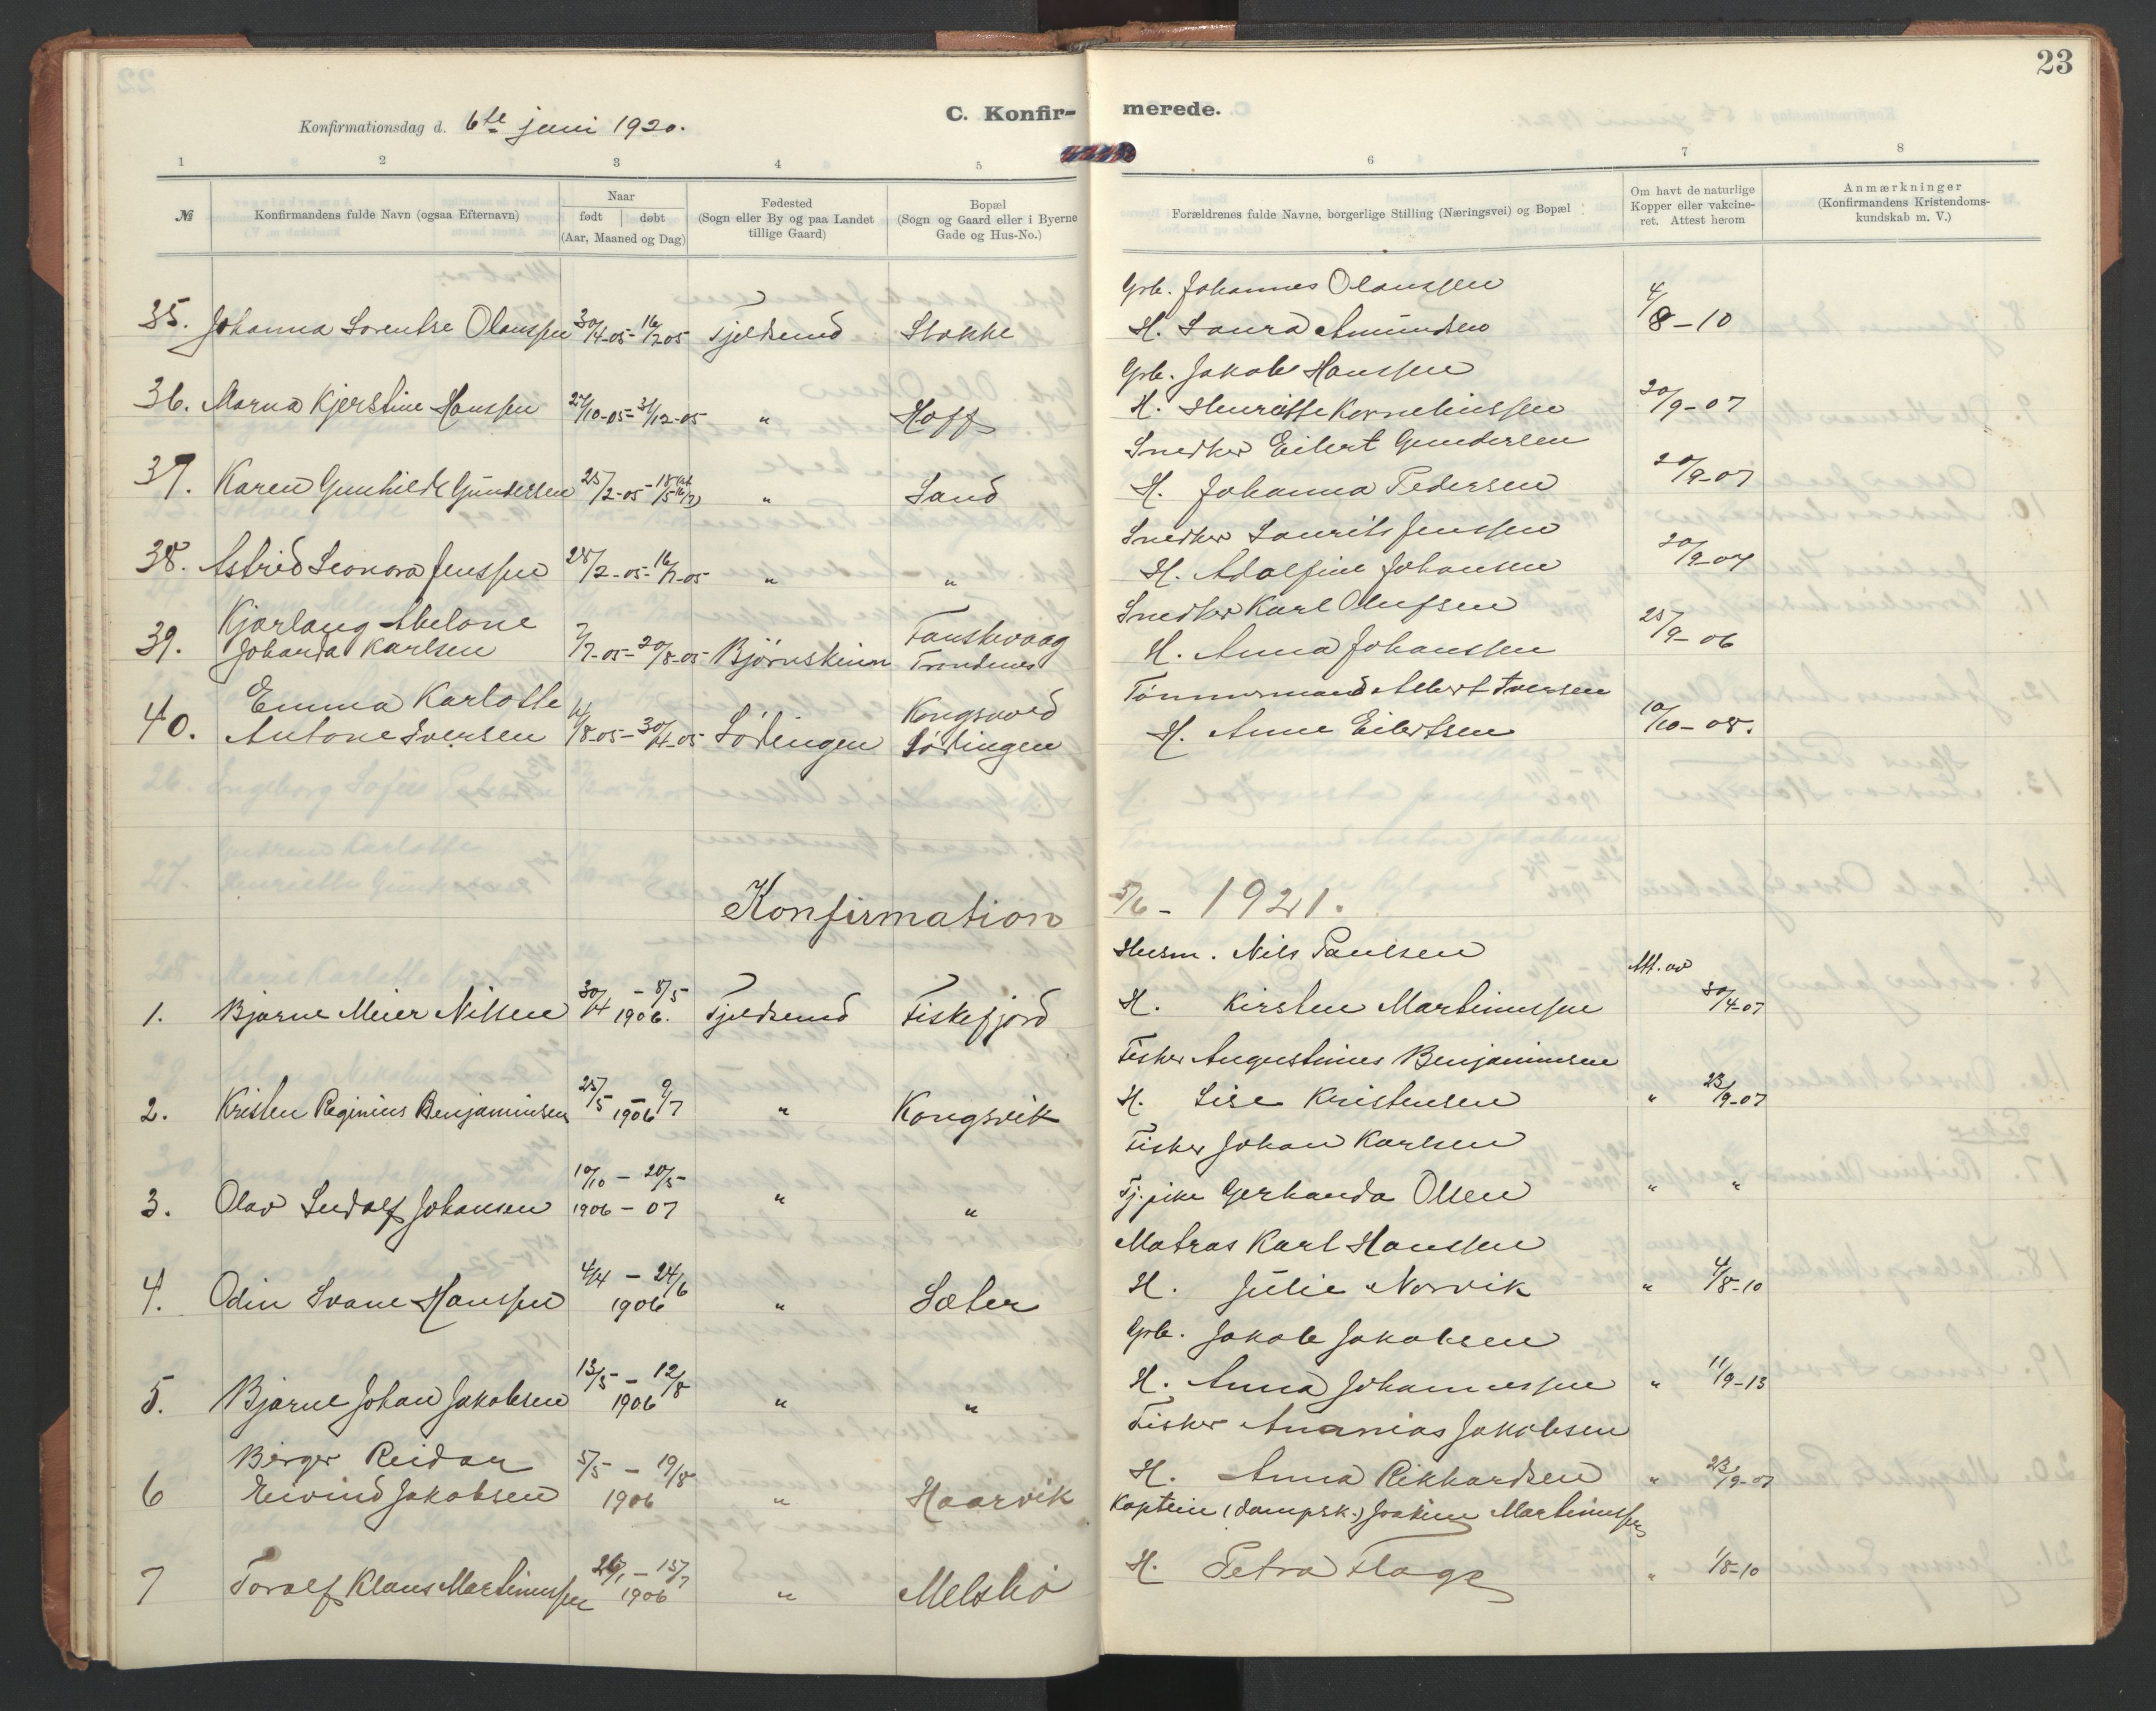 23
Konfirmationsdag d. 6te juni 1920.
C. Konfir-
merede.
1 2 3 4 5 6 7 8
№
Konfirmandens fulde Navn (ogsaa Efternavn)
Naar
født | døbt
(Aar, Maaned og Dag)
Fødested
(Sogn eller By og paa Landet
tillige Gaard)
Bopæl
(Sogn og Gaard eller i Byerne
Gade og Hus-No.)
Forældrenes fulde Navne, borgerlige Stilling (Næringsvei) og Bopæl
Om havt de naturlige
Kopper eller vakcine-
ret. Attest herom
Anmærkninger
(Konfirmandens Kristendoms-
kundskab m. V.)
Grb. Johannes Olaussen
35. Johanna Lorentse Olaussen 30/4-05 - 16/7 05 Tjeldsund Stokke H. Laura Amundsen 4/8-10
Grb. Jakob Hanssen
36. Marna Kjerstine Hanssen /10-05 - 31/12-05 " Hoff H. Henriette Korneliussen 20/9-07
Snedker Eilert Gundersen
37. Karen Gunhilde Gundersen 25/2-05 - " Sand H. Johanna Pedersen 20/9-07
Snedker Laurits Jenssen
38. Astrid Leonora Jenssen 28/2-05 - 16/7-05 " " H. Adolfine Johansen 20/9-07
Kjørlaug Abelone Fauskevaag Snedker Karl Olufsen
39. Joharda Karlsen 7/7-05 - 20/8-05 Bjørnskinn Trondenes H. Anna Johanssen 25/9-06
Emma Karlotte Kongsvold Tømmermand Albert Iversen
40. Antone Iversen /8-05 - 30/4-05 Lødingen Lødingen H. Anne Eilertsen 10/10-08.
Konfirmation 5/6 - 1921.
Husm. Nils Paulsen Att. av
1. Bjarne Meier Nilsen 30/4 - 8/5 1906. Tjeldsund Fiskefjord H. Kirsten Martinussen 30/4-07
Fisker Augustinus Benjaminsen
2. Kristen Reginius Benjaminsen 25/5 - 9/7 1906 " Kongsvik H. Lise Kristensen " 23/9-07
Fisker Johan Karlsen
3. Olav Ludolf Johansen 10/10 - 20/5 1906 - 07 " " Tj.pike Gerharda Olsen " "
Matros Karl Hanssen
4. Odin Svane Hanssen 4/4 - 24/6 1906 " Sæter H. Julie Norvik " 4/8-10
Grb. Jakob Jakobsen
5. Bjarne Johan Jakobsen 13/5 - 12/8 1906 " " H. Anna Johannessen " 11/9-13
Birger Reidar Fisker Ananias Jakobsen
6 Eivind Jakobsen 5/5 - 19/8 1906 " Haarvik H. Anna Rikhardsen " 23/9-07
Kaptein (dampsk.) Joakim Martinussen
7 Toralf Klaus Martinussen 26/1 - 15/7 1906 " Melshø H. Petra Flage " 1/8-10